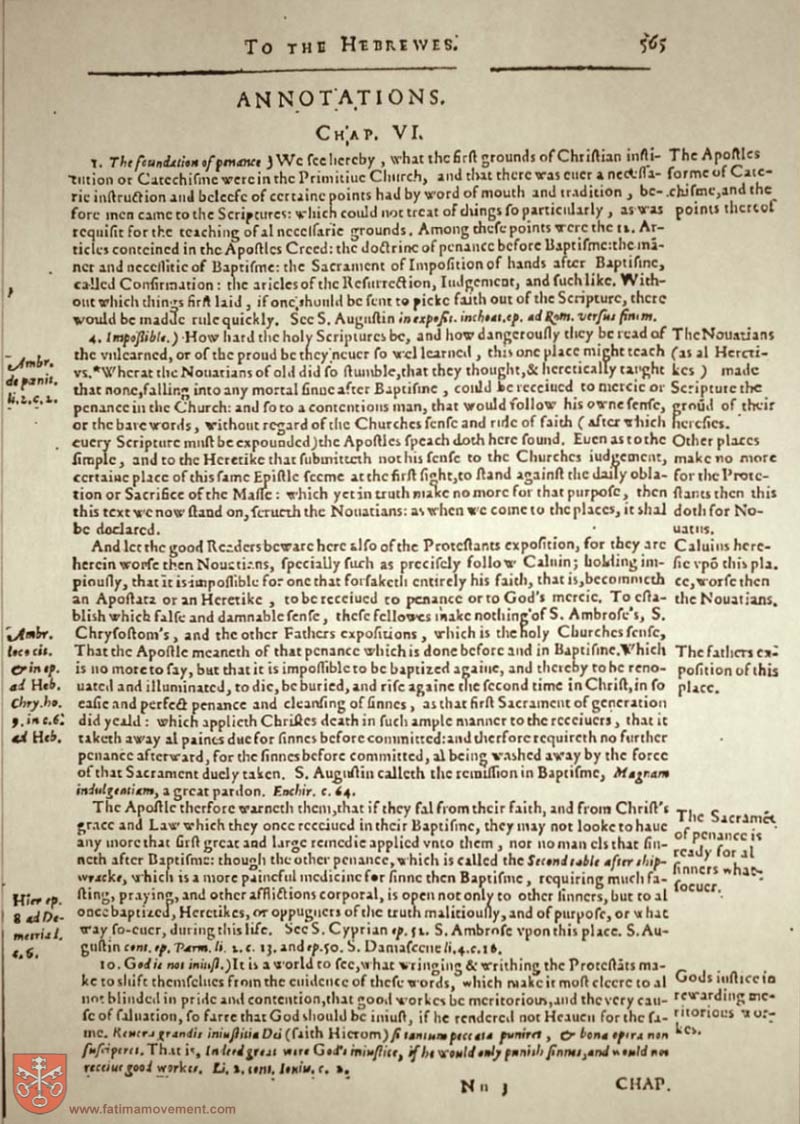 TO THE HEBREWES.
565
ANNOTATIONS.
CHAP. VI.
1. The foundation of penance ) We ſee hereby, what the firſt grounds of Chriſtian inſti-
tution or Catechiſme were in the Primitiue Church, and that there was euer a neceſſa-
rie inſtruction and beleefe of certaine points had by word of mouth and tradition, be-
fore men came to the Scriptures: which could not treat of things ſo particularly, as was
requiſit for the teaching of al neceſſarie grounds. Among theſe points were the 12. Ar-
ticles conteined in the Apoſtles Creed: the doctrine of penance before Baptiſme: the mā-
ner and neceſſitie of Baptiſme: the Sacrament of Impoſition of hands after Baptiſme,
called Confirmation: the aricles of the Reſurrection, Iudgement, and ſuch like. With-
out which things firſt laid, if one ſhould be ſent to picke faith out of the Scripture, there
would be madde rule quickly. See S. Auguſtin in expoſit. inchoat. ep. ad Rom. verſus finim.
4. Impoſſible.) How hard the holy Scriptures be, and how dangerouſly they be read of
the vnlearned, or of the proud be they neuer ſo wel learned, this one place might teach
vs.* Wherat the Nouatians of old did ſo ſtumble, that they thought, & heretically taught
that none, falling into any mortal ſinne after Baptiſme, could be receiued to mercie or
penance in the Church: and ſo to a contentious man, that would follow his owne ſenſe,
or the bare words, without regard of the Churches ſenſe and rule of faith (after which
euery Scripture muſt be expounded) the Apoſtles ſpeach doth here ſound. Euen as to the
ſimple, and to the Heretike that ſubmitteth not his ſenſe to the Churches iudgement,
certaine place of this ſame Epiſtle ſeeme at the firſt ſight, to ſtand againſt the daily obla-
tion or Sacrifice of the Maſſe: which yet in truth make no more for that purpoſe, then
this text we now ſtand on, ſerueth the Nouatians: as when we come to the places, it ſhal
be declared.
And let the good Readers beware here alſo of the Proteſtants expoſition, for they are
herein worſe then Nouatians, ſpecially ſuch as preciſely follow Caluin; holding im-
piouſly, that it is impoſſible for one that forſaketh entirely his faith, that is, becommeth
an Apoſtata or an Heretike, to be receiued to penance or to God's mercie. To eſta-
bliſh which falſe and damnable ſenſe, theſe fellowes make nothing of S. Ambroſe's, S.
Chryſoſtom's, and the other Fathers expoſitions, which is the holy Churches ſenſe,
That the Apoſtle meaneth of that penance which is done before and in Baptiſme. Which
is no more to ſay, but that it is impoſſible to be baptized againe, and thereby to be reno-
uated and illuminated, to die, be buried, and riſe againe the ſecond time in Chriſt, in ſo
eaſie and perfect penance and cleanſing of ſinnes, as that firſt Sacrament of generation
did yeald: which applieth Chriſtes death in ſuch ample manner to the receiuers, that it
taketh away al paines due for ſinnes before committed: and therfore requireth no further
penance afterward, for the ſinnes before committed, al being waſhed away by the force
of that Sacrament duely taken. S. Auguſtin calleth the remiſſion in Baptiſme, Magnam
indulgentiam, a great pardon. Enchir. c. 64.
The Apoſtle therfore warneth them, that if they fal from their faith, and from Chriſt's
grace and Law which they once receiued in their Baptiſme, they may not looke to haue
any more that firſt great and large remedie applied vnto them, nor no man els that ſin-
neth after Baptiſme: though the other penance, which is called the Second table after ſhip-
wracke, which is a more paineful medicine for ſinne then Baptiſme, requiring much fa-
ſting, praying, and other afflictions corporal, is open not only to other ſinners, but to al
once baptized, Heretikes, or oppugners of the truth malitiouſly, and of purpoſe, or what
way ſo-euer, during this life. See S. Cyprian ep. 52. S. Ambroſe vpon this place. S. Au-
guſtin cont. ep. Parm. li. 2. c. 13. and ep. 50. S. Damaſcene li. 4. c. 10.
10. God is not iniuſt.) It is a world to ſee, what wringing & writhing the Proteſtāts ma-
ke to ſhift themſelues from the euidence of theſe words, which make it moſt cleere to al
not blinded in pride and contention, that good workes be meritorious, and the very cau-
ſe of ſaluation, ſo farre that God ſhould be iniuſt, if he rendered not Heauen for the ſa-
me. Reuera grandis iniuſtitia Dei (ſaith Hierom) ſi tantum peccata puniret, & bona opera non
ſuſciperet. That is, In deed great were God's iniuſtice, if he would only puniſh ſinnes, and would not
receiue good workes. Li. 2. cont. Iouin. c. 2.
Nn 3
CHAP.
The Apoſtles
forme of Cate-
chiſme, and the
points therof
The Nouatians
(as al Hereti-
kes) made
Scripture the
groūd of their
hereſies.
Other places
make no more
for the Prote-
ſtants then this
doth for No-
uatus.
Caluins here-
ſie vpō this pla.
ce, worſe then
the Nouatians.
The fathers ex-
poſition of this
place.
The Sacramēt
of penance is
ready for al
ſinners what-
ſoeuer.
Gods iuſtice in
rewarding me-
ritorious wor-
kes.
Ambr.
de pœnit.
li. 2. c. 2.
Ambr.
loco cit.
& in ep.
ad Heb.
Chry. ho.
9. in c. 6.
ad Heb.
Hier ep.
8 ad De-
metriad.
c. 6.
www.fatimamovement.com